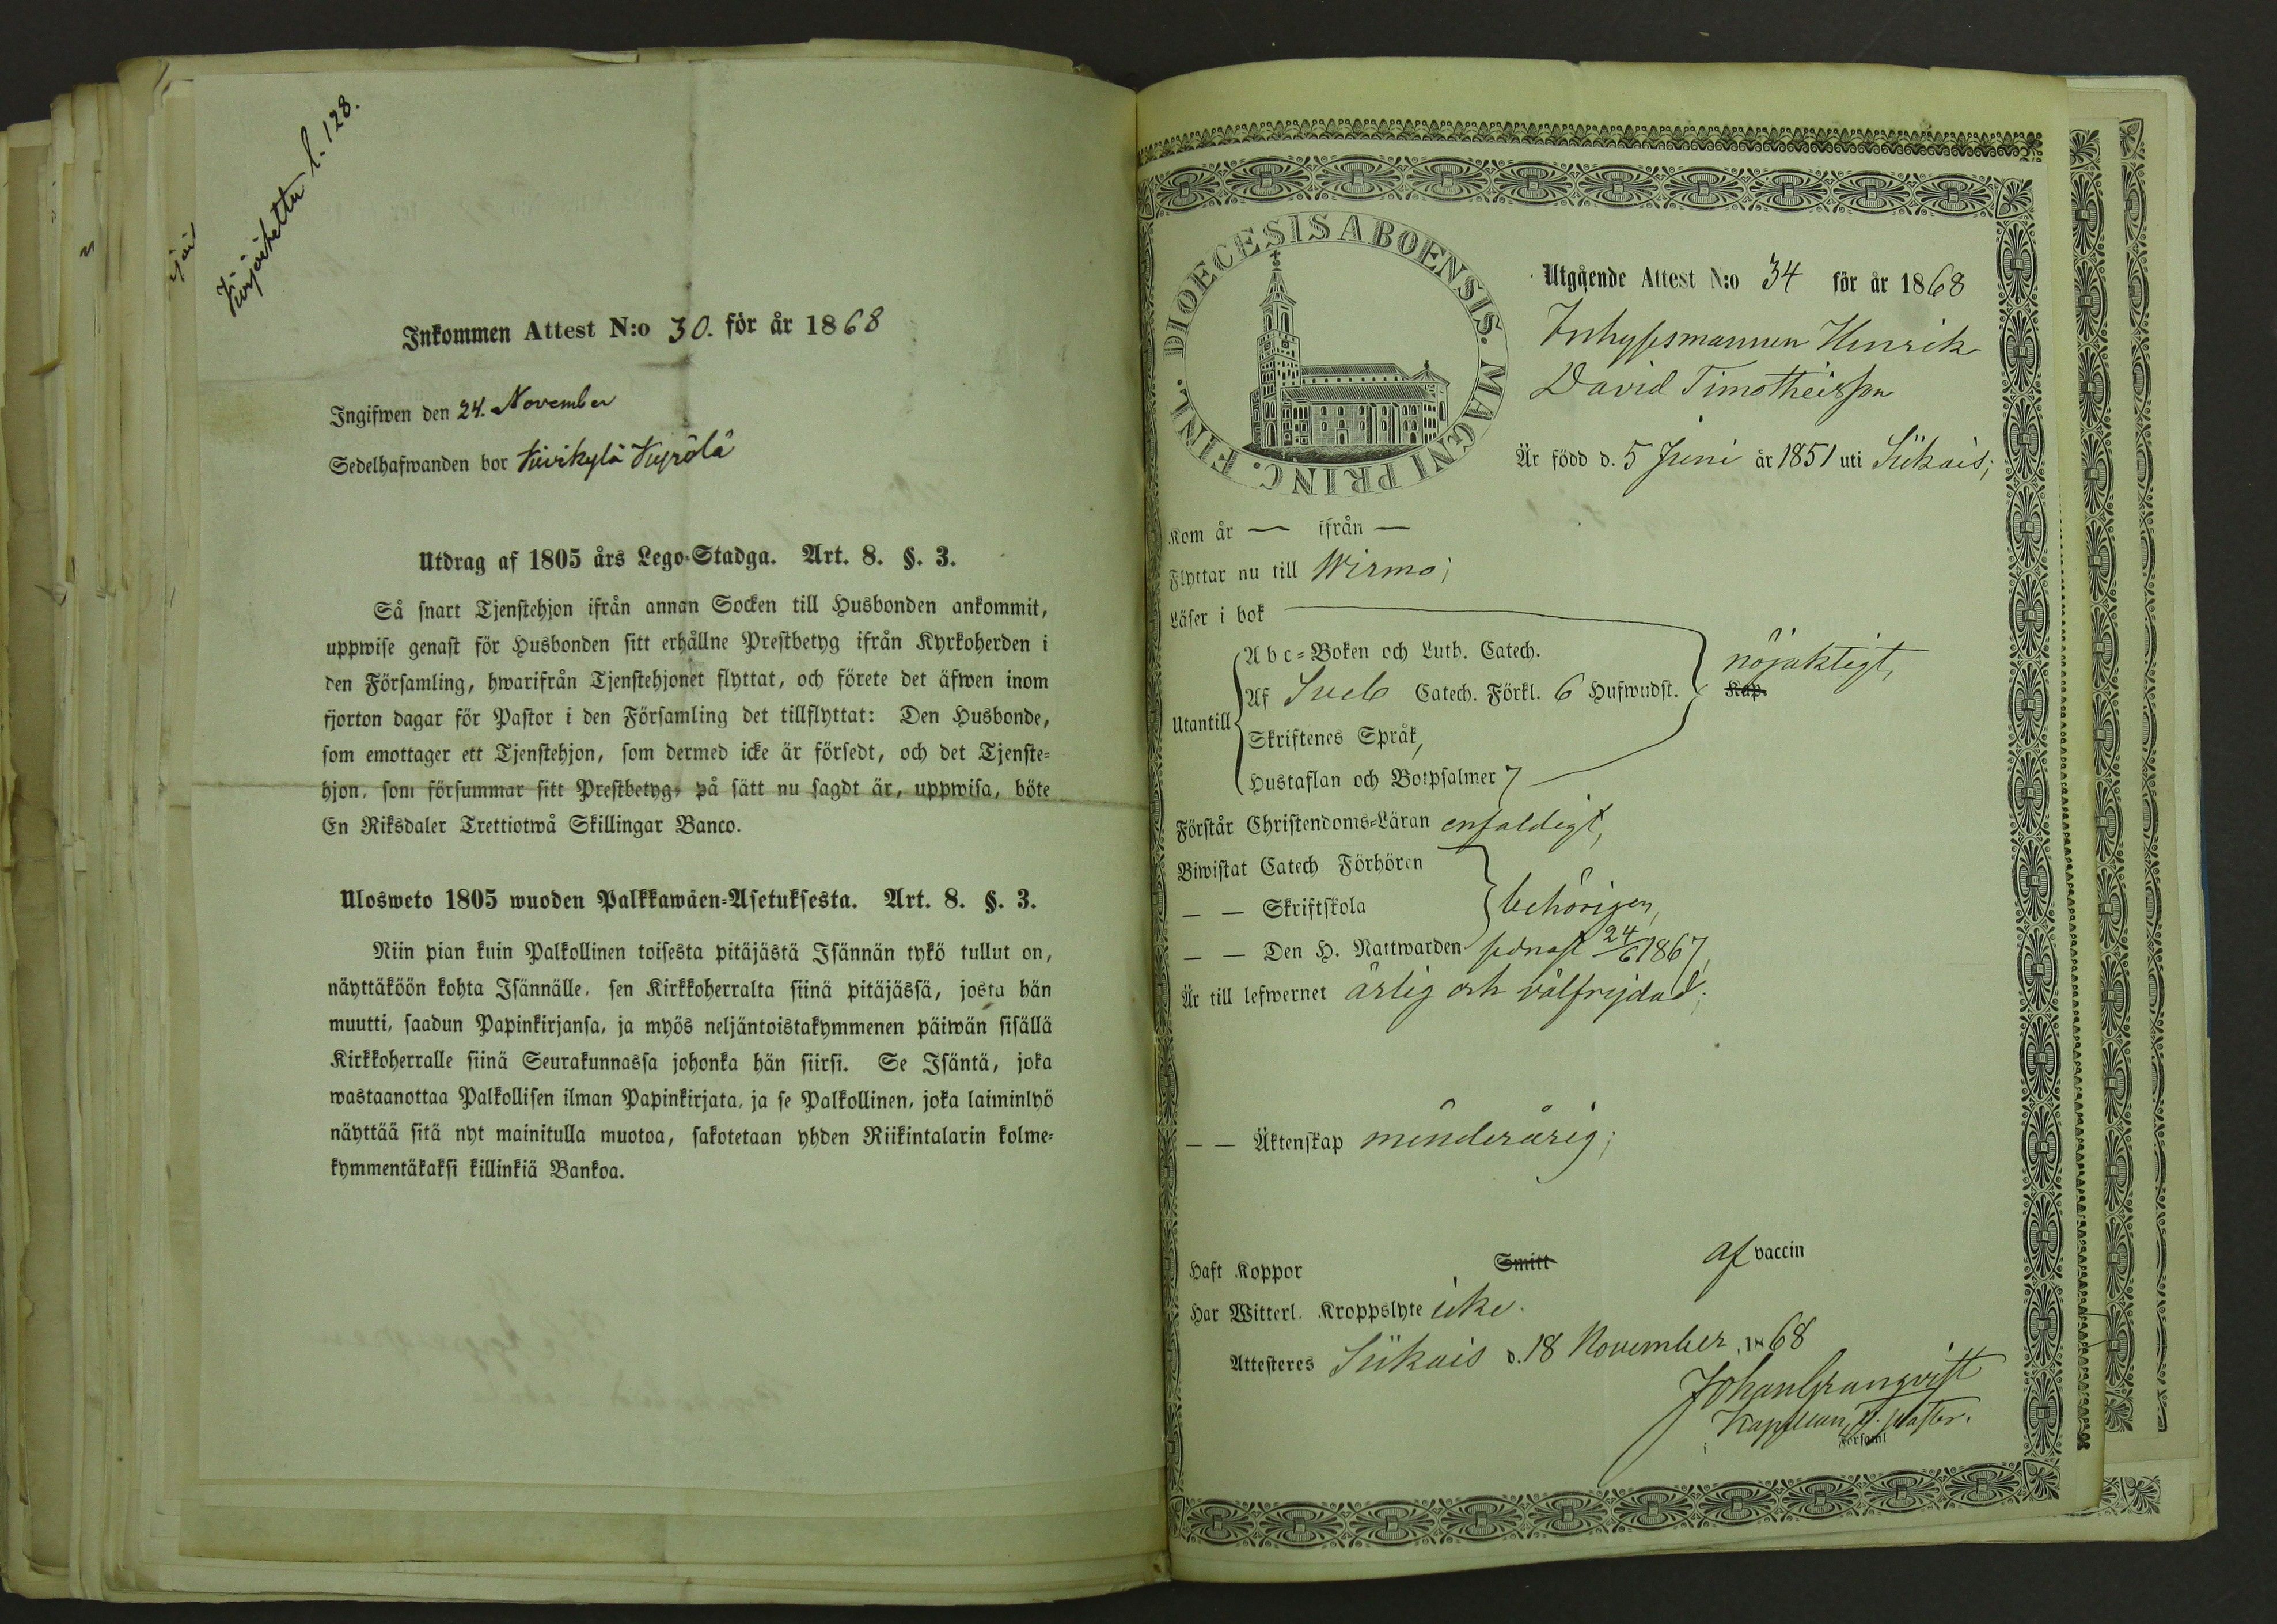 Kirjoitettu l. 128.
Inkommen Attest N:o 30. för år 1868
Ingifwen den 24. November
Sedelhafwanden bor Kivikylä Kyrölä
Utdrag af 1805 års Lego-Stadga. Art. 8. §. 3.
Så snart Tjenstehjon ifrån annan Socken till Husbonden ankommit,
uppwise genast för Husbonden sitt erhållne Prestbetyg ifrån Kyrkoherden i
den Församling, hwarifrån Tjenstehjonet flyttat, och förete det äfwen inom
fjorton dagar för Pastor i den Församling det tillflyttat: Den Husbonde,
som emottager ett Tjenstehjon, som dermed icke är försedt, och det Tjenste-
hjon, som försummar sitt Prestbetyg, på sätt nu sagdt är, uppwisa, böte
En Riksdaler Trettiotwå Skillingar Banco.
Ulosweto 1805 wuoden Palkkawäen-Asetuksesta. Art. 8. §. 3.
Niin pian kuin Palkollinen toisesta pitäjästä Isännän tykö tullut on,
näyttäköön kohta Isännälle, sen Kirkkoherralta siinä pitäjässä, josta hän
muutti, saadun Papinkirjansa, ja myös neljäntoistakymmenen päiwän sisällä
Kirkkoherralle siinä Seurakunnassa johonka hän siirsi. Se Isäntä, joka
wastaanottaa Palkollisen ilman Papinkirjata, ja se Palkollinen, joka laiminlyö
näyttää sitä nyt mainitulla muotoa, sakotetaan yhden Riikintalarin kolme-
kymmentäkaksi killinkiä Bankoa.
DIOECESIS ABOENSIS. MAGNI PRINC. FINL.
Utgående Attest N:o 34 för år 1868
Inhysesmannen Henrik
David Timotheisson
Är född d. 5 Juni år 1851 uti Sükais;
Kom år — ifrån —
Flyttar nu till Wirmo;
Läser i bok
Abc-Boken och Luth. Catech.
nöjaktigt,
Utantill
Af Sveb Catech. Förkl. 6 Hufwudst. Kap.
Skriftenes Språk,
Hustaflan och Botpsalmer 7
Förstår Christendoms-Läran enfaldigt,
Biwistat Catech Förhören
— — Skriftskola behörigen,
— — Den H. Nattwarden sednast 24/6 1867,
Är till lefwernet ärlig och välfrejdad;
— — Äktenskap minderårig;
Haft Koppor Smitt af vaccin
Har Witterl. Kroppslyte icke.
Attesteres Sükais d. 18 November, 1868
Johan Granqvist
Kapellan, V. Pastor.
i Församl